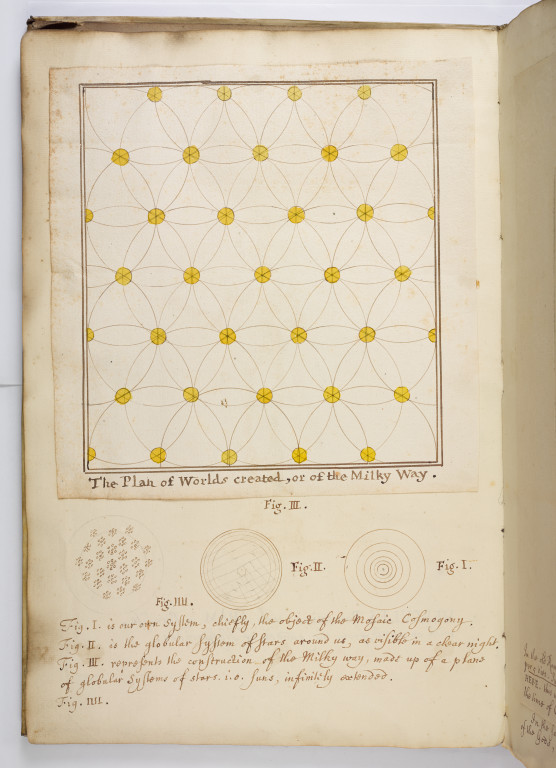 The Plan of Worlds created, or of the Milky Way.
Fig. III.
Fig. IIII.
Fig. II.
Fig. I.
Fig. I. is our own System, chiefly, the object of the Mosaic Cosmogony.
Fig. II. is the globular System of Stars around us, as visible in a clear night.
Fig. III. represents the construction of the Milky way, made up of a plane
of globular Systems of stars. i.e. suns, infinitely extended.
Fig. IIII.
In the
the
In the
of the